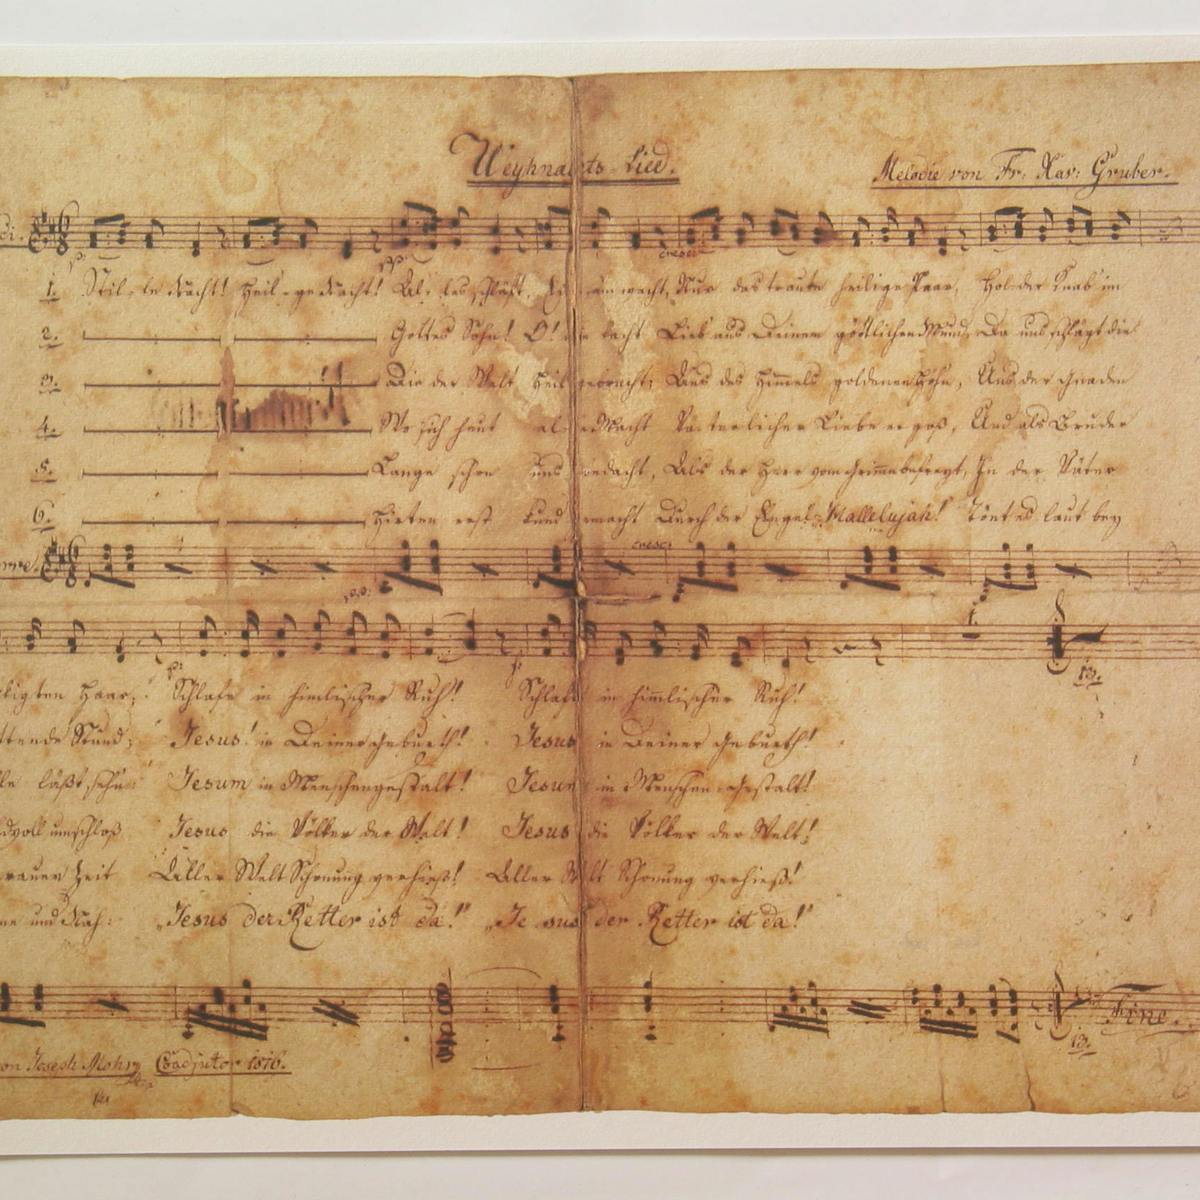 Weyhnachts-Lied.
Melodie von Fr: Xav: Gruber.
di.
p:
pp:
cresc:
1. Stil-le Nacht! Heil-ge Nacht! Al-les schläft, Ei am wacht, Nur das traute heilige Paar, Holder Knab' im
2. Gottes Sohn! O! wie lacht Lieb aus Deinem göttlichen Mund, Da uns schlägt die
3. Die der Welt Heil gebracht; Aus des Himmels goldenen Höhn, Uns der Gnaden
4. Wo sich heut al-le Macht Väterlicher Liebe ergoß, Und als Bruder
5. Lange schon uns bedacht, Als der Herr vom Grimme befreyt, In der Väter
6. Hirten erst kund gemacht Durch der Engel Hallelujah! Tönt es laut bey
rre.
cresc:
pp:
p:
p:
kigten Haar; Schlafe in himlischer Ruh! Schlafe in himlischer Ruh!
ttende Stund; Jesus! in Deiner Geburth! Jesus in Deiner Geburth!
le läßt sehn: Jesum in Menschengestalt! Jesum in Menschen-Gestalt!
dvoll umschloß Jesus die Völker der Welt! Jesus die Völker der Welt!
rauer Zeit Aller Welt Schonung verhieß! Aller Welt Schonung verhieß!
ne und Nah: „Jesus der Retter ist da!" „Jesus der Retter ist da!"
Fine.
on Joseph Mohr Coadjutor 1816.